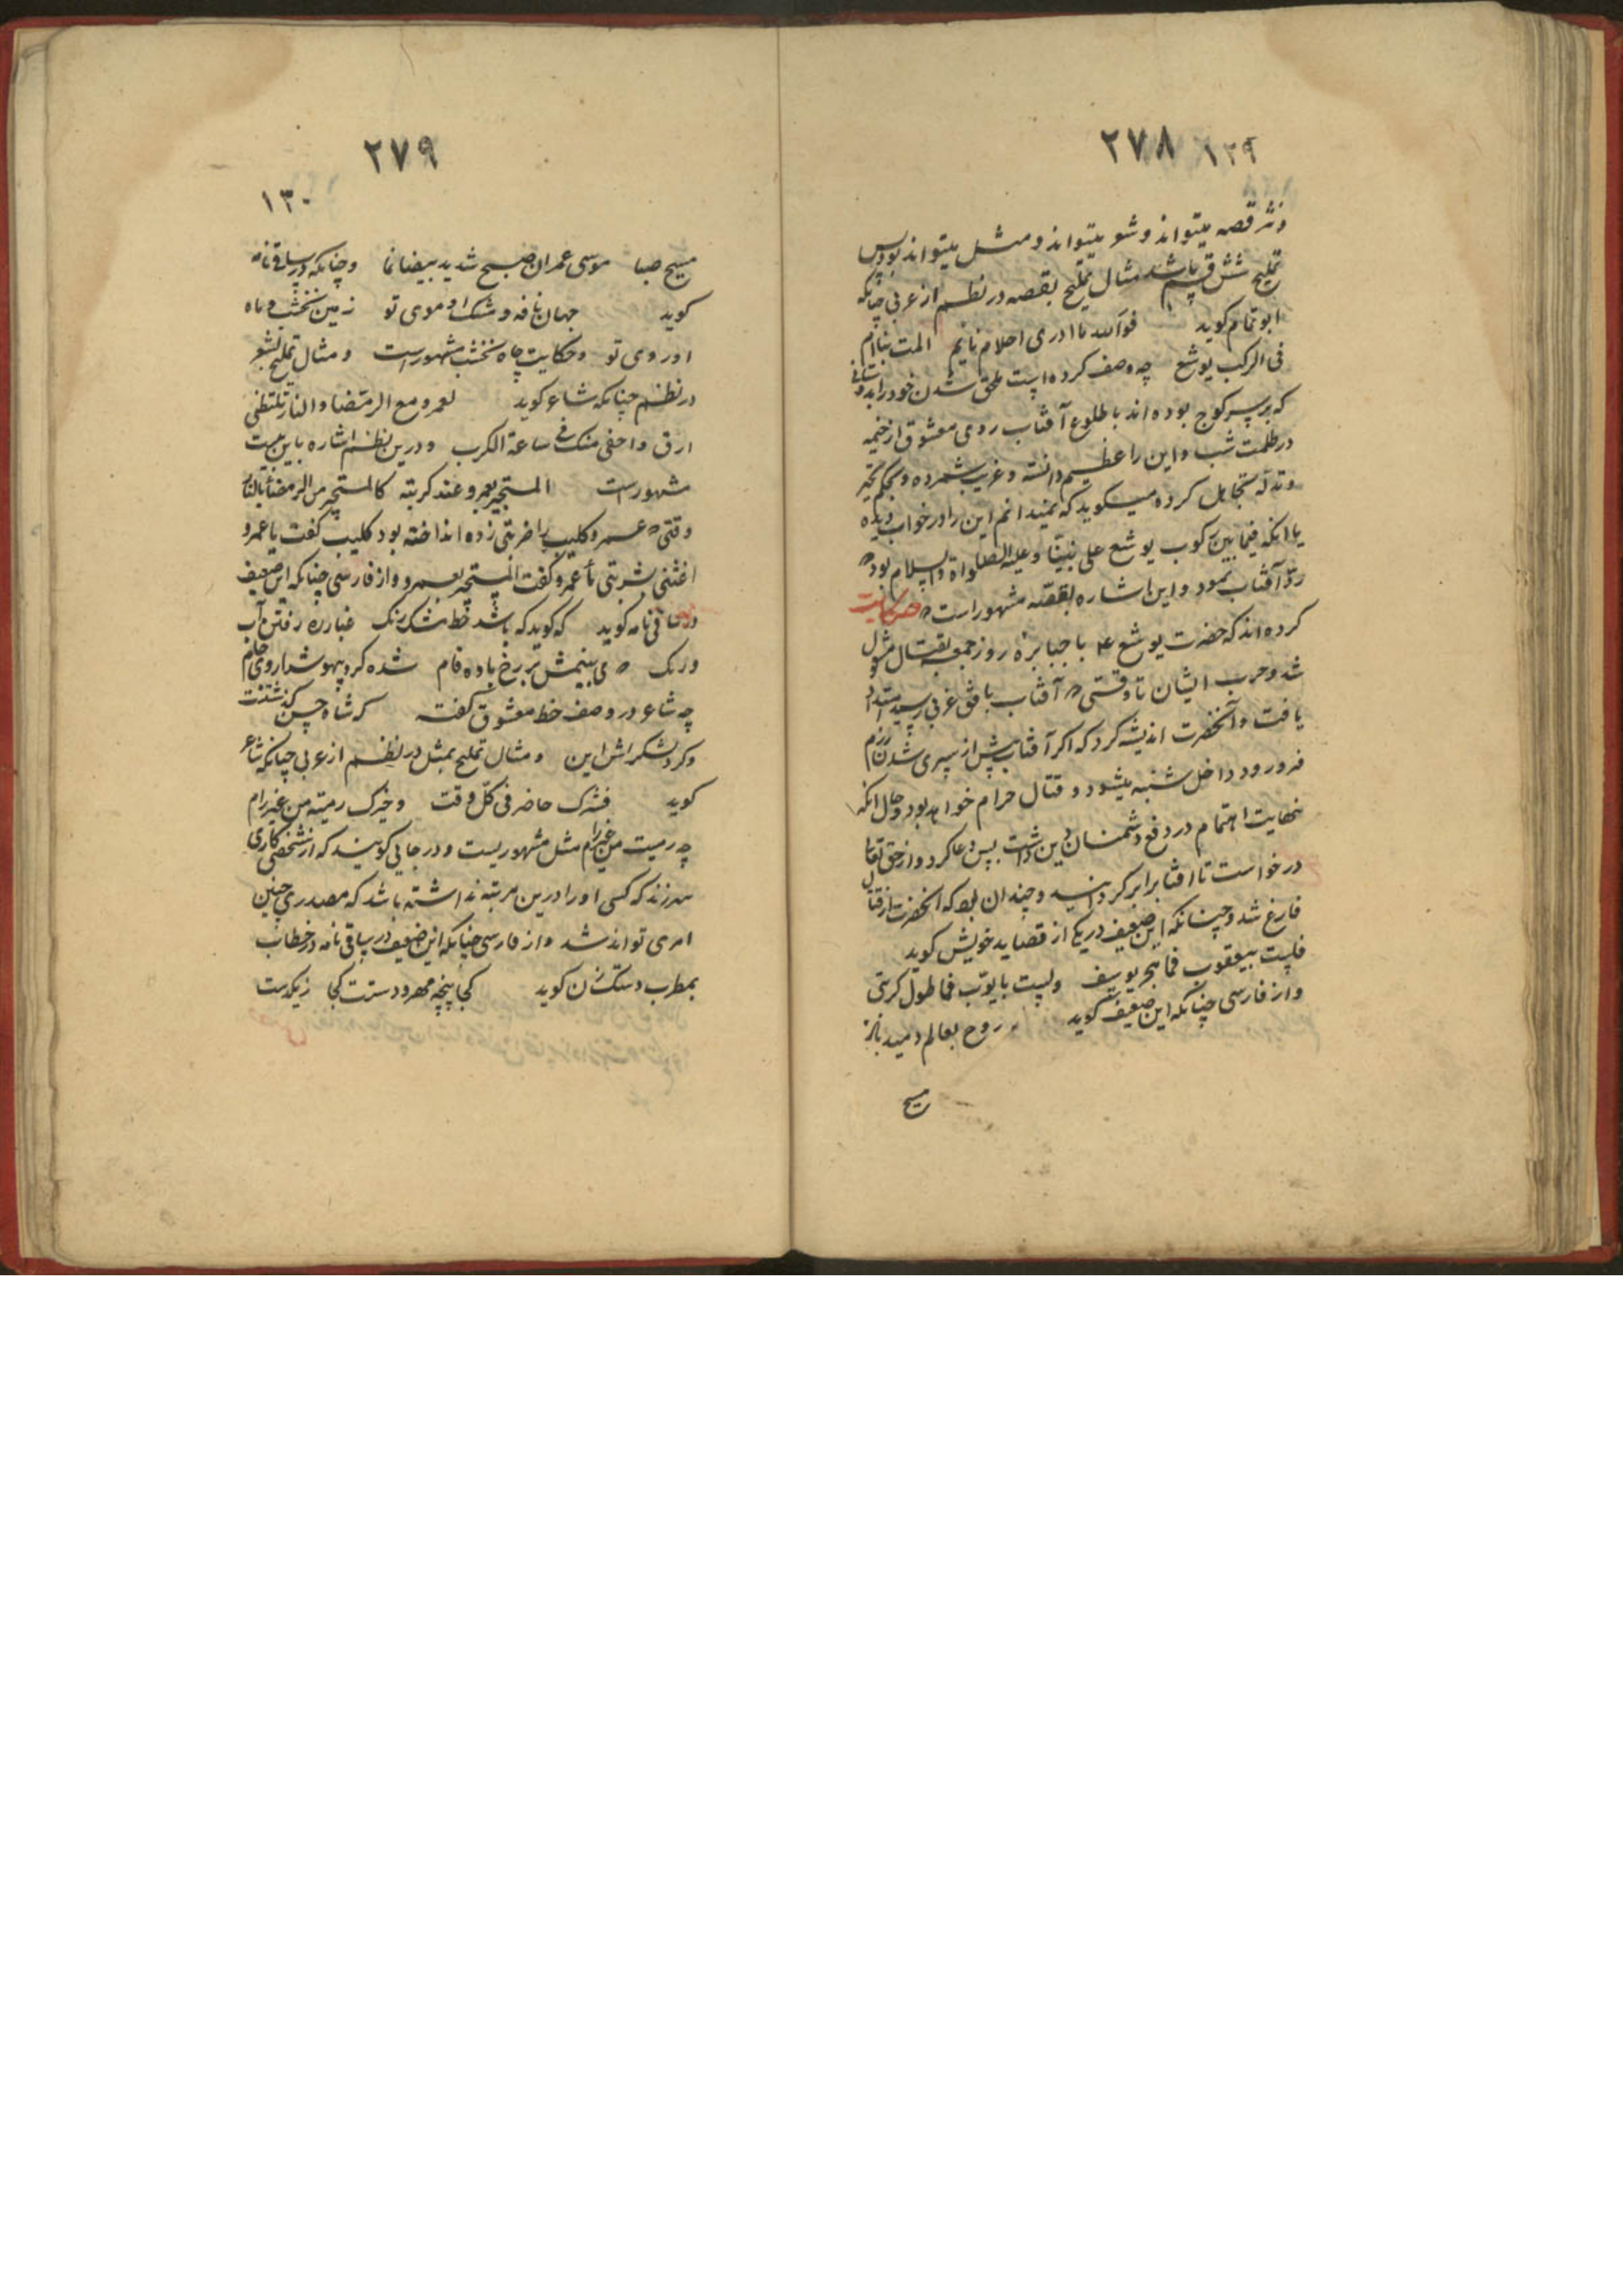 ۲۷۸ ۱۲۹
ونثر قصه میتواند وشعر میتواند ومثل میتواند بود پس
تملیح شش قسم باشد مثال تملیح بقصه در نظم از عربی چنانکه
ابو تمام کوید فوالله ما ادری احلام نائم المت بنا ام
فی الرکب یوشع چه وصف کرده است ملحق شدن خود را بدوستانی
که بر سر کوچ بوده اند با طلوع آفتاب روی معشوق از خیمه
در ظلمت شب واین را عظیم دانسته وغریب شمرده وبحکم تحیر
وتدله تجاهل کرده میکوید که نمیدانم این را در خواب دیده
یا انکه فیما بین رکوب یوشع علی نبینا وعلیه الصلواة والسلام بود که
رد آفتاب نمود واین اشاره بقصه مشهور است که حکایت
کرده اند که حضرت یوشع ع با جبابره روز جمعه بقتال مشغول
شد وحرب ایشان تا وقتی که آفتاب بافق غربی رسید امتداد
یافت وآنحضرت اندیشه کرد که اکر آفتاب پیش از سپری شدن رزم
فرو رود داخل شنبه میشود وقتال حرام خواهد بود وحال انکه
نهایت اهتمام در دفع دشمنان دین داشت پس دعا کرد واز حق تعالی
درخواست تا افتاب را بر کردانید وچندان بود که انحضرت از قتال
فارغ شد وچنانکه این ضعیف در یکی از قصاید خویش کوید
فلیت بیعقوب فما هجر یوسف ولیت بایوب فما طول کربتی
واز فارسی چنانکه این ضعیف کوید روح بعالم دمید باز
مسیح
۲۷۹
۱۳۰
مسیح صبا موسی عمران صبح شد ید بیضا نما وچنانکه در ساقی نامه
کوید جهان نافه ومشک او موی تو زمین نخشب وماه
او روی تو وحکایت چاه نخشب مشهور است ومثال تملیح بشعر
در نظم چنانکه شاعر کوید لعمرو مع الرمضا والنار تلتظی
ارق واحفی منک فی ساعة الکرب ودرین نظم اشاره باین بیت
مشهور است المستجیر بعمرو عند کربته کالمستجیر من الرمضاء بالنار
وقتی که عمرو کلیب را ضربتی زده انداخته بود کلیب کفت یا عمرو
اغثنی بشربتی ماء عمرو کفت المستجیر بعمرو واز فارسی چنانکه این ضعیف
در ساقی نامه کوید که کوید که باشد خط مشک رنک غباره رفتن آب
ورنک که می بینمش بر رخ باده فام شده کرد بیهوشدارو جام
چه شاعر در وصف خط معشوق کفته که شاه حسن کذشتست
وکرد لشکرش این ومثال تملیح بمثل در نظم از عربی چنانکه شاعر
کوید فشرک حاضر فی کل وقت وخیرک رمیته من غیر رام
چه رمیت من غیر رام مثل مشهور یست ودر جایی کویند که از شخصی کاری
سر زند که کسی او را درین مرتبه نداشته باشد که مصدر چنین
امری تواند شد واز فارسی چنانکه این ضعیف در ساقی نامه در خطاب
بمطرب دستک زن کوید کجا پنجه مهرو دستت کجا زیکدست